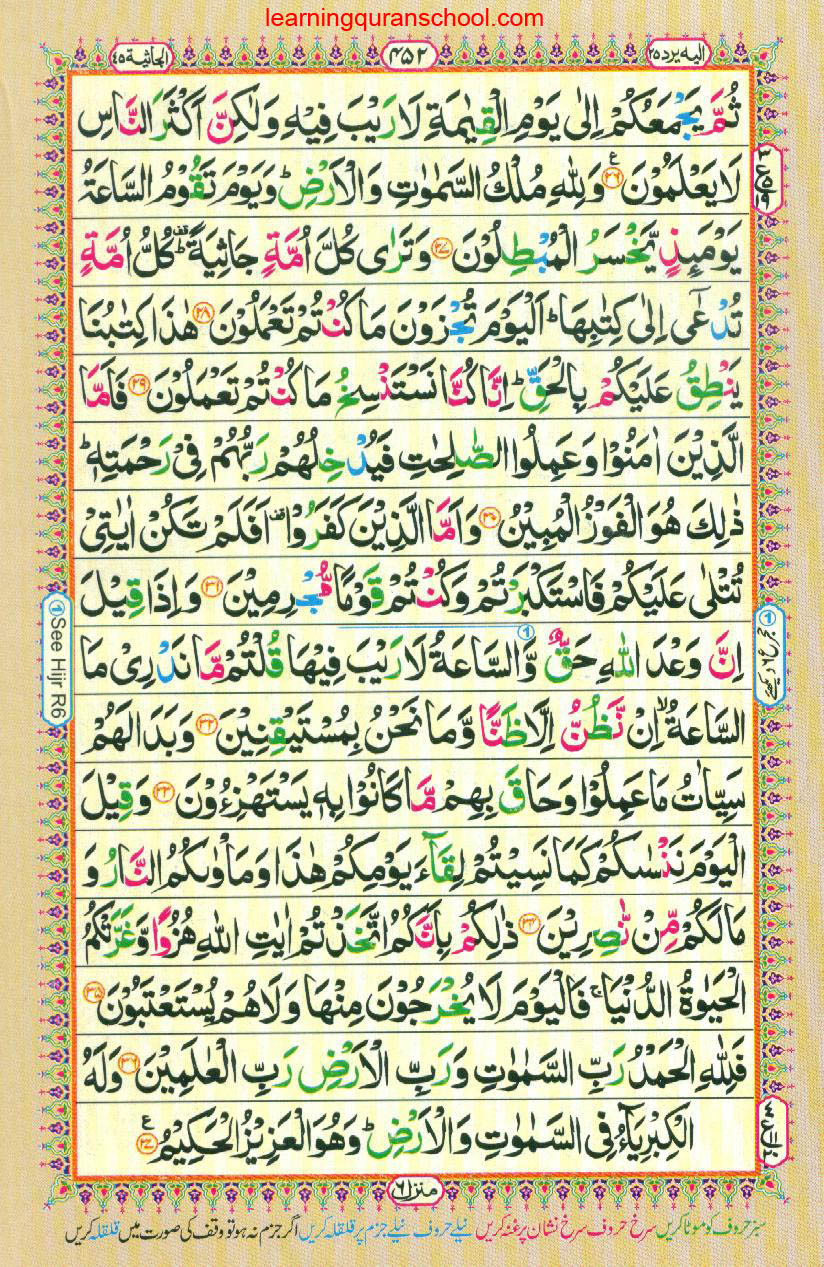 learningquranschool.com
الیه یرد ۲۵
۴۵۲
الجاثیة ۴۵
ثُمَّ یَجْمَعُكُمْ اِلٰی یَوْمِ الْقِیٰمَةِ لَا رَیْبَ فِیْهِ وَلٰكِنَّ اَكْثَرَ النَّاسِ
لَا یَعْلَمُوْنَ ۲۶ ع وَلِلّٰهِ مُلْكُ السَّمٰوٰتِ وَالْاَرْضِ ؕ وَیَوْمَ تَقُوْمُ السَّاعَةُ
یَوْمَىِٕذٍ یَّخْسَرُ الْمُبْطِلُوْنَ ۲۷ وَتَرٰی كُلَّ اُمَّةٍ جَاثِیَةً ؕ قف كُلُّ اُمَّةٍ
تُدْعٰۤی اِلٰی كِتٰبِهَا ؕ اَلْیَوْمَ تُجْزَوْنَ مَا كُنْتُمْ تَعْمَلُوْنَ ۲۸ هٰذَا كِتٰبُنَا
یَنْطِقُ عَلَیْكُمْ بِالْحَقِّ ؕ اِنَّا كُنَّا نَسْتَنْسِخُ مَا كُنْتُمْ تَعْمَلُوْنَ ۲۹ فَاَمَّا
الَّذِیْنَ اٰمَنُوْا وَعَمِلُوا الصّٰلِحٰتِ فَیُدْخِلُهُمْ رَبُّهُمْ فِیْ رَحْمَتِهٖ ؕ
ذٰلِكَ هُوَ الْفَوْزُ الْمُبِیْنُ ۳۰ وَاَمَّا الَّذِیْنَ كَفَرُوْا قف اَفَلَمْ تَكُنْ اٰیٰتِیْ
تُتْلٰی عَلَیْكُمْ فَاسْتَكْبَرْتُمْ وَكُنْتُمْ قَوْمًا مُّجْرِمِیْنَ ۳۱ وَاِذَا قِیْلَ
اِنَّ وَعْدَ اللّٰهِ حَقٌّ ۱ وَّالسَّاعَةُ لَا رَیْبَ فِیْهَا قُلْتُمْ مَّا نَدْرِیْ مَا
السَّاعَةُ ۙ اِنْ نَّظُنُّ اِلَّا ظَنًّا وَّمَا نَحْنُ بِمُسْتَیْقِنِیْنَ ۳۲ وَبَدَا لَهُمْ
سَیِّاٰتُ مَا عَمِلُوْا وَحَاقَ بِهِمْ مَّا كَانُوْا بِهٖ یَسْتَهْزِءُوْنَ ۳۳ وَقِیْلَ
الْیَوْمَ نَنْسٰىكُمْ كَمَا نَسِیْتُمْ لِقَآءَ یَوْمِكُمْ هٰذَا وَمَاْوٰىكُمُ النَّارُ وَ
مَا لَكُمْ مِّنْ نّٰصِرِیْنَ ۳۴ ذٰلِكُمْ بِاَنَّكُمُ اتَّخَذْتُمْ اٰیٰتِ اللّٰهِ هُزُوًا وَّغَرَّتْكُمُ
الْحَیٰوةُ الدُّنْیَا ۚ فَالْیَوْمَ لَا یُخْرَجُوْنَ مِنْهَا وَلَا هُمْ یُسْتَعْتَبُوْنَ ۳۵
فَلِلّٰهِ الْحَمْدُ رَبِّ السَّمٰوٰتِ وَرَبِّ الْاَرْضِ رَبِّ الْعٰلَمِیْنَ ۳۶ وَلَهُ
الْكِبْرِیَآءُ فِی السَّمٰوٰتِ وَالْاَرْضِ ؕ وَهُوَ الْعَزِیْزُ الْحَكِیْمُ ۳۷ ع
① See Hijr R6
منزل ۶
سبز حروف کو موٹا کریں سرخ حروف سرخ نشان پر غنہ کریں نیلے حروف نیلے جزم پر قلقلہ کریں اگر جزم نہ ہو تو وقف کی صورت میں قلقلہ کریں